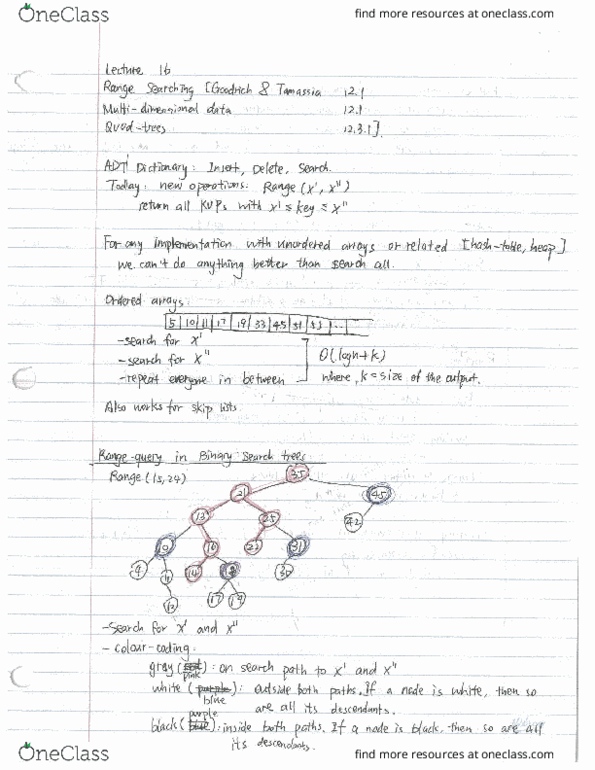 OneClass
find more resources at oneclass.com
Lecture 16
Range Searching [Goodrich & Tamassia 12.1
Multi-dimensional data 12.1
Quad-trees 12.3.1].
ADT Dictionary: Insert, Delete, Search.
Today: new operations: Range (x', x'')
return all KVPs with x' ≤ key ≤ x''
For any implementation with unordered arrays or related [hash-table, heap]
we can't do anything better than search all.
Ordered arrays:
5 10 11 17 19 33 45 51 ...
-search for x'
-search for x'' O(logn+k)
-repeat everyone in between where, k=size of the output.
Also works for skip lists
Range-query in Binary Search trees
Range (15,24)
35
21 45
13 25 42
10 16 31
9 11 14 30
12 17 19
-Search for x' and x''
- colour-coding.
gray (pink): on search path to x' and x''
white (purple blue): outside both paths. If a node is white, then so
are all its descendants.
black (blue purple): inside both paths. If a node is black, then so are all
its descendants.
OneClass
find more resources at oneclass.com